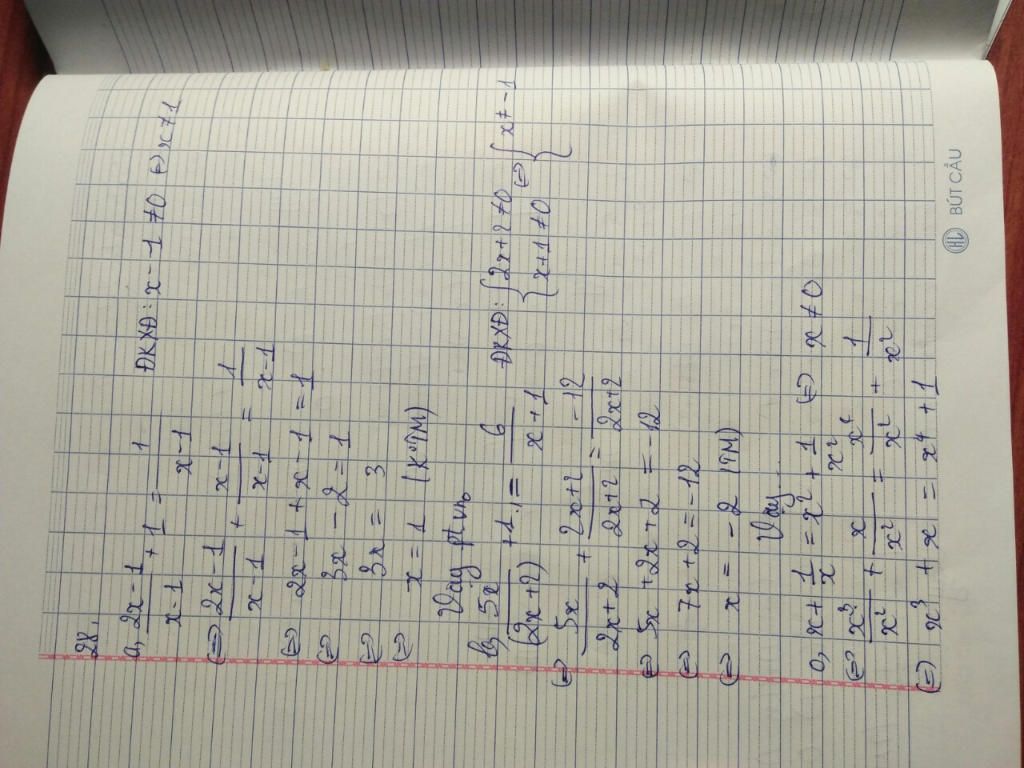 28.
a, (2x-1)/(x-1) + 1 = 1/(x-1) ĐKXĐ: x - 1 ≠ 0 ⇔ x ≠ 1
⇔ (2x-1)/(x-1) + (x-1)/(x-1) = 1/(x-1)
⇔ 2x-1 + x-1 = 1
⇔ 3x - 2 = 1
⇔ 3x = 3
⇔ x = 1 (KTM)
Vậy ptvn
b, 5x/(2x+2) + 1 = 6/(x+1) ĐKXĐ: { 2x+2 ≠ 0 ⇔ { x ≠ -1
{ x+1 ≠ 0
⇔ 5x/(2x+2) + (2x+2)/(2x+2) = -12/(2x+2)
⇔ 5x + 2x + 2 = -12
⇔ 7x + 2 = -12
⇔ x = -2 (TM)
Vậy...
c, x + 1/x = x² + 1/x² ⇔ x ≠ 0
⇔ x³/x² + x/x² = x⁴/x² + 1/x²
⇔ x³ + x = x⁴ + 1
HL BÚT CẦU